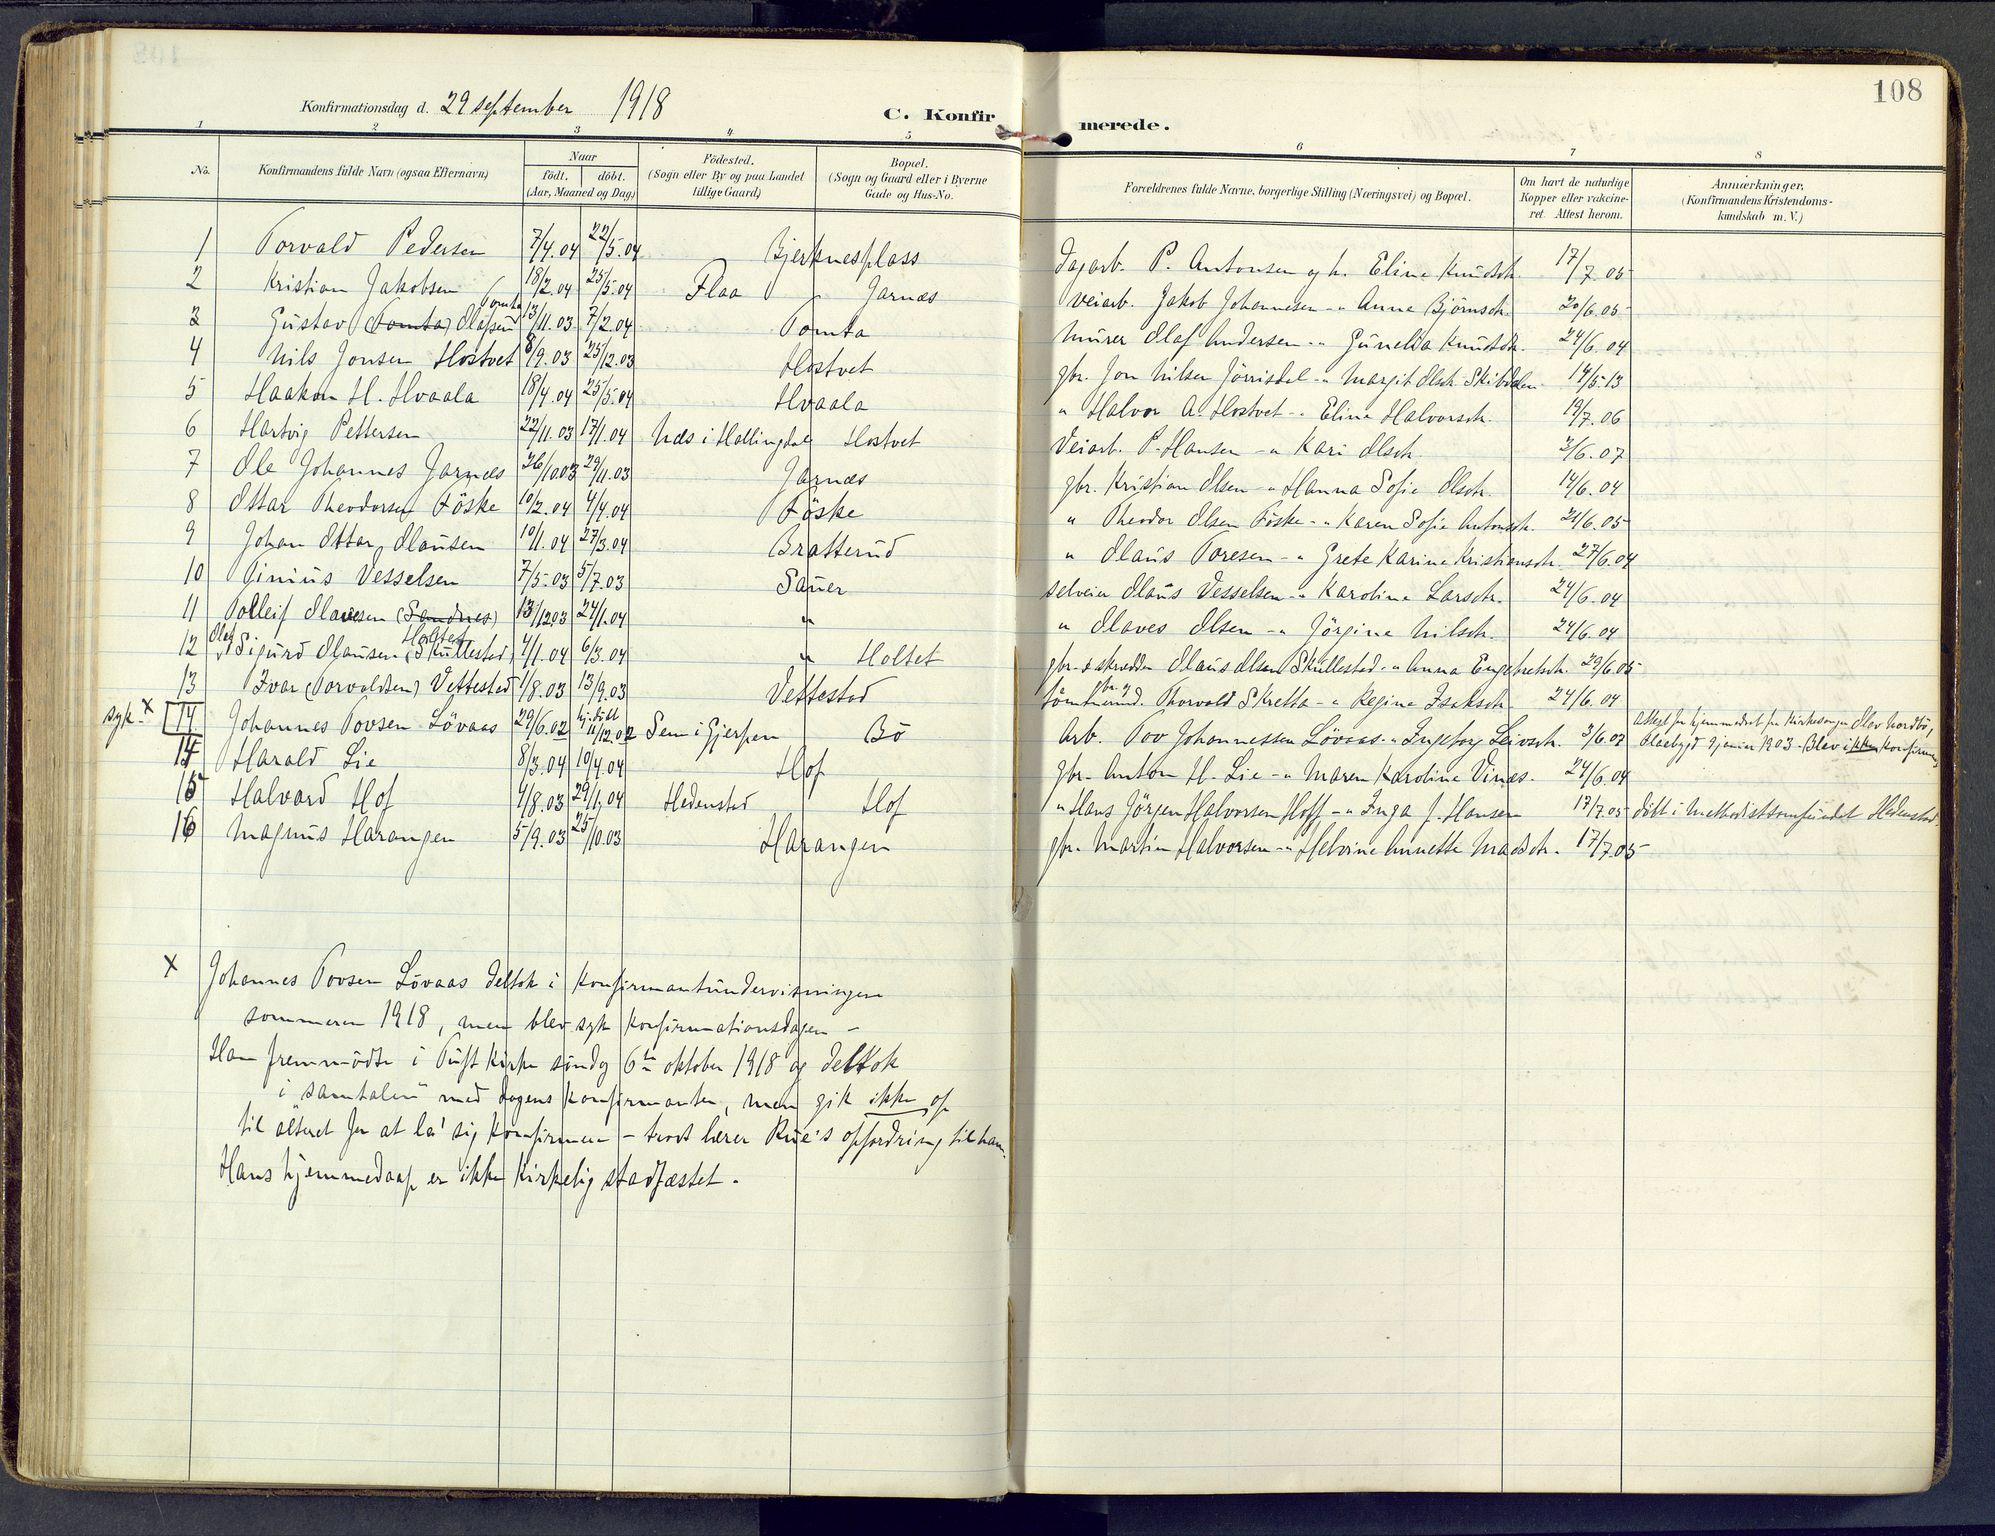 108
Konfirmationsdag d. 29 september 1918
C. Konfirmerede.
1 2 3 4 5 6 7 8
No.
Konfirmandens fulde Navn (ogsaa Efternavn)
Naar
födt. döbt.
(Aar, Maaned og Dag)
Födested.
(Sogn eller By og paa Landet
tillige Gaard)
Bopæl.
(Sogn og Gaard eller i Byerne
Gade og Hus-No.
Forældrenes fulde Navne, borgerlige Stilling (Næringsvei) og Bopæl.
Om havt de naturlige
Kopper eller vakcine-
ret. Attest herom.
Anmærkninger,
(Konfirmandens Kristendoms-
kundskab m. V.)
1 Torvald Pedersen 7/4.04 22/5.04 Bjerknesplass Dagarb. P. Antonsen og h. Eline Knudsdt. 17/7.05
2 Kristian Jakobsen 18/2.04 25/5.04 Flaa Jarnæs Veiarb. Jakob Johannesen -"- Anna Bjørnsdt. 20/6.05
Tomta
3 Gustav (Tomta) Olafsen 13/11.03 7/2.04 Tomta Murer Olaf Andersen -"- Gunelia Knudsdt. 24/6.04
4 Nils Jonsen Hostvet 8/9.03 25/12.03 Hostvet gbr. Jon Nilsen Jörrisdal -"- Margit Olsdt. 14/5.13
5 Haakon H. Hvaala 18/4.04 25/5.04 Hvaala " Halvor A. Hostvet -"- Eline Halvorsdt. 19/7.06
6 Hartvig Pettersen 22/11.03 17/1.04 Næs i Hallingdal Hostvet Veiarb. P. Hansen -"- Kari Olsdt. 2/6.07
7 Ole Johannes Jarnæs 26/10.03 29/11.03 Jarnæs gbr. Kristian Olsen -"- Hanna Sofie Olsdtr. 14/6.04
8 Ottar Theodorsen Föske 10/2.04 4/4.04 Föske " Theodor Olsen Föske -"- Karen Sofie Antonsdt. 24/6.05
9 Johan Ottar Olausen 10/1.04 27/3.04 Bratterud " Olaus Toresen -"- Grete Karine Kristiansdt. 27/6.04
10 Ginius Vesselsen 7/5.03 5/7.03 Sauer selveier Olaus Vesselsen -"- Karoline Larsdtr. 24/6.04
11 Tolleif Olavesen (Sandnes) 13/12.03 24/1.04 " " Olaves Olsen -"- Jörgine Nilsdt. 24/6.04
Olaf Holtet
12 Sigurd Olausen (Skullestad) 4/1.04 6/3.04 " Holtet gbr. & skredder Olaus Olsen Skullestad -"- Anna Engebretsdt. 29/6.05
13 Ivar (Torvaldsen) Vettestad 1/8.03 13/9.03 Vettestad br. og tömmermd. Thorvald Skretta -"- Regine Isaksdt. 24/6.04
syk. x 14 Johannes Tovsen Lövaas 29/6.02 hj.döbt 11/12.02 Sem i Gjerpen Bö Arb. Tov Johannessen Lövaas -"- Ingeborg Leivsdt. 3/6.07 Attest for hjemmedaab fra kirkesanger Olav Nordbö,
9 januar 1903 - Blev ikke konfirmert
14 Harald Lie 8/3.04 10/4.04 Hof gbr. Anton H. Lie -"- Maren Karoline Vinæs. 24/6.04
15 Halvard Hof 4/8.03 29/1.04 Hedenstad Hof " Hans Jörgen Halvorsen Hoff -"- Inga J. Hansen 17/7.05 döbt i Methodistsamfundet Hedenstad.
16 Magnus Harangen 5/9.03 25/10.03 Harangen gbr. Martin Halvorsen -"- Helvine Annette Madsdt. 17/7.05
x Johannes Tovsen Lövaas deltok i konfirmantundervisningen
sommeren 1918, men blev syk konfirmationsdagen -
Han fremmödte i Tuft kirke söndag 6te oktober 1918 og deltok
i "samtalen" med dagens konfirmanter, men gik ikke op
til alteret for at la' sig konfirmere - trods lærer Rue's opfordring til ham.
Hans hjemmedaap er ikke kirkelig stadfæstet.